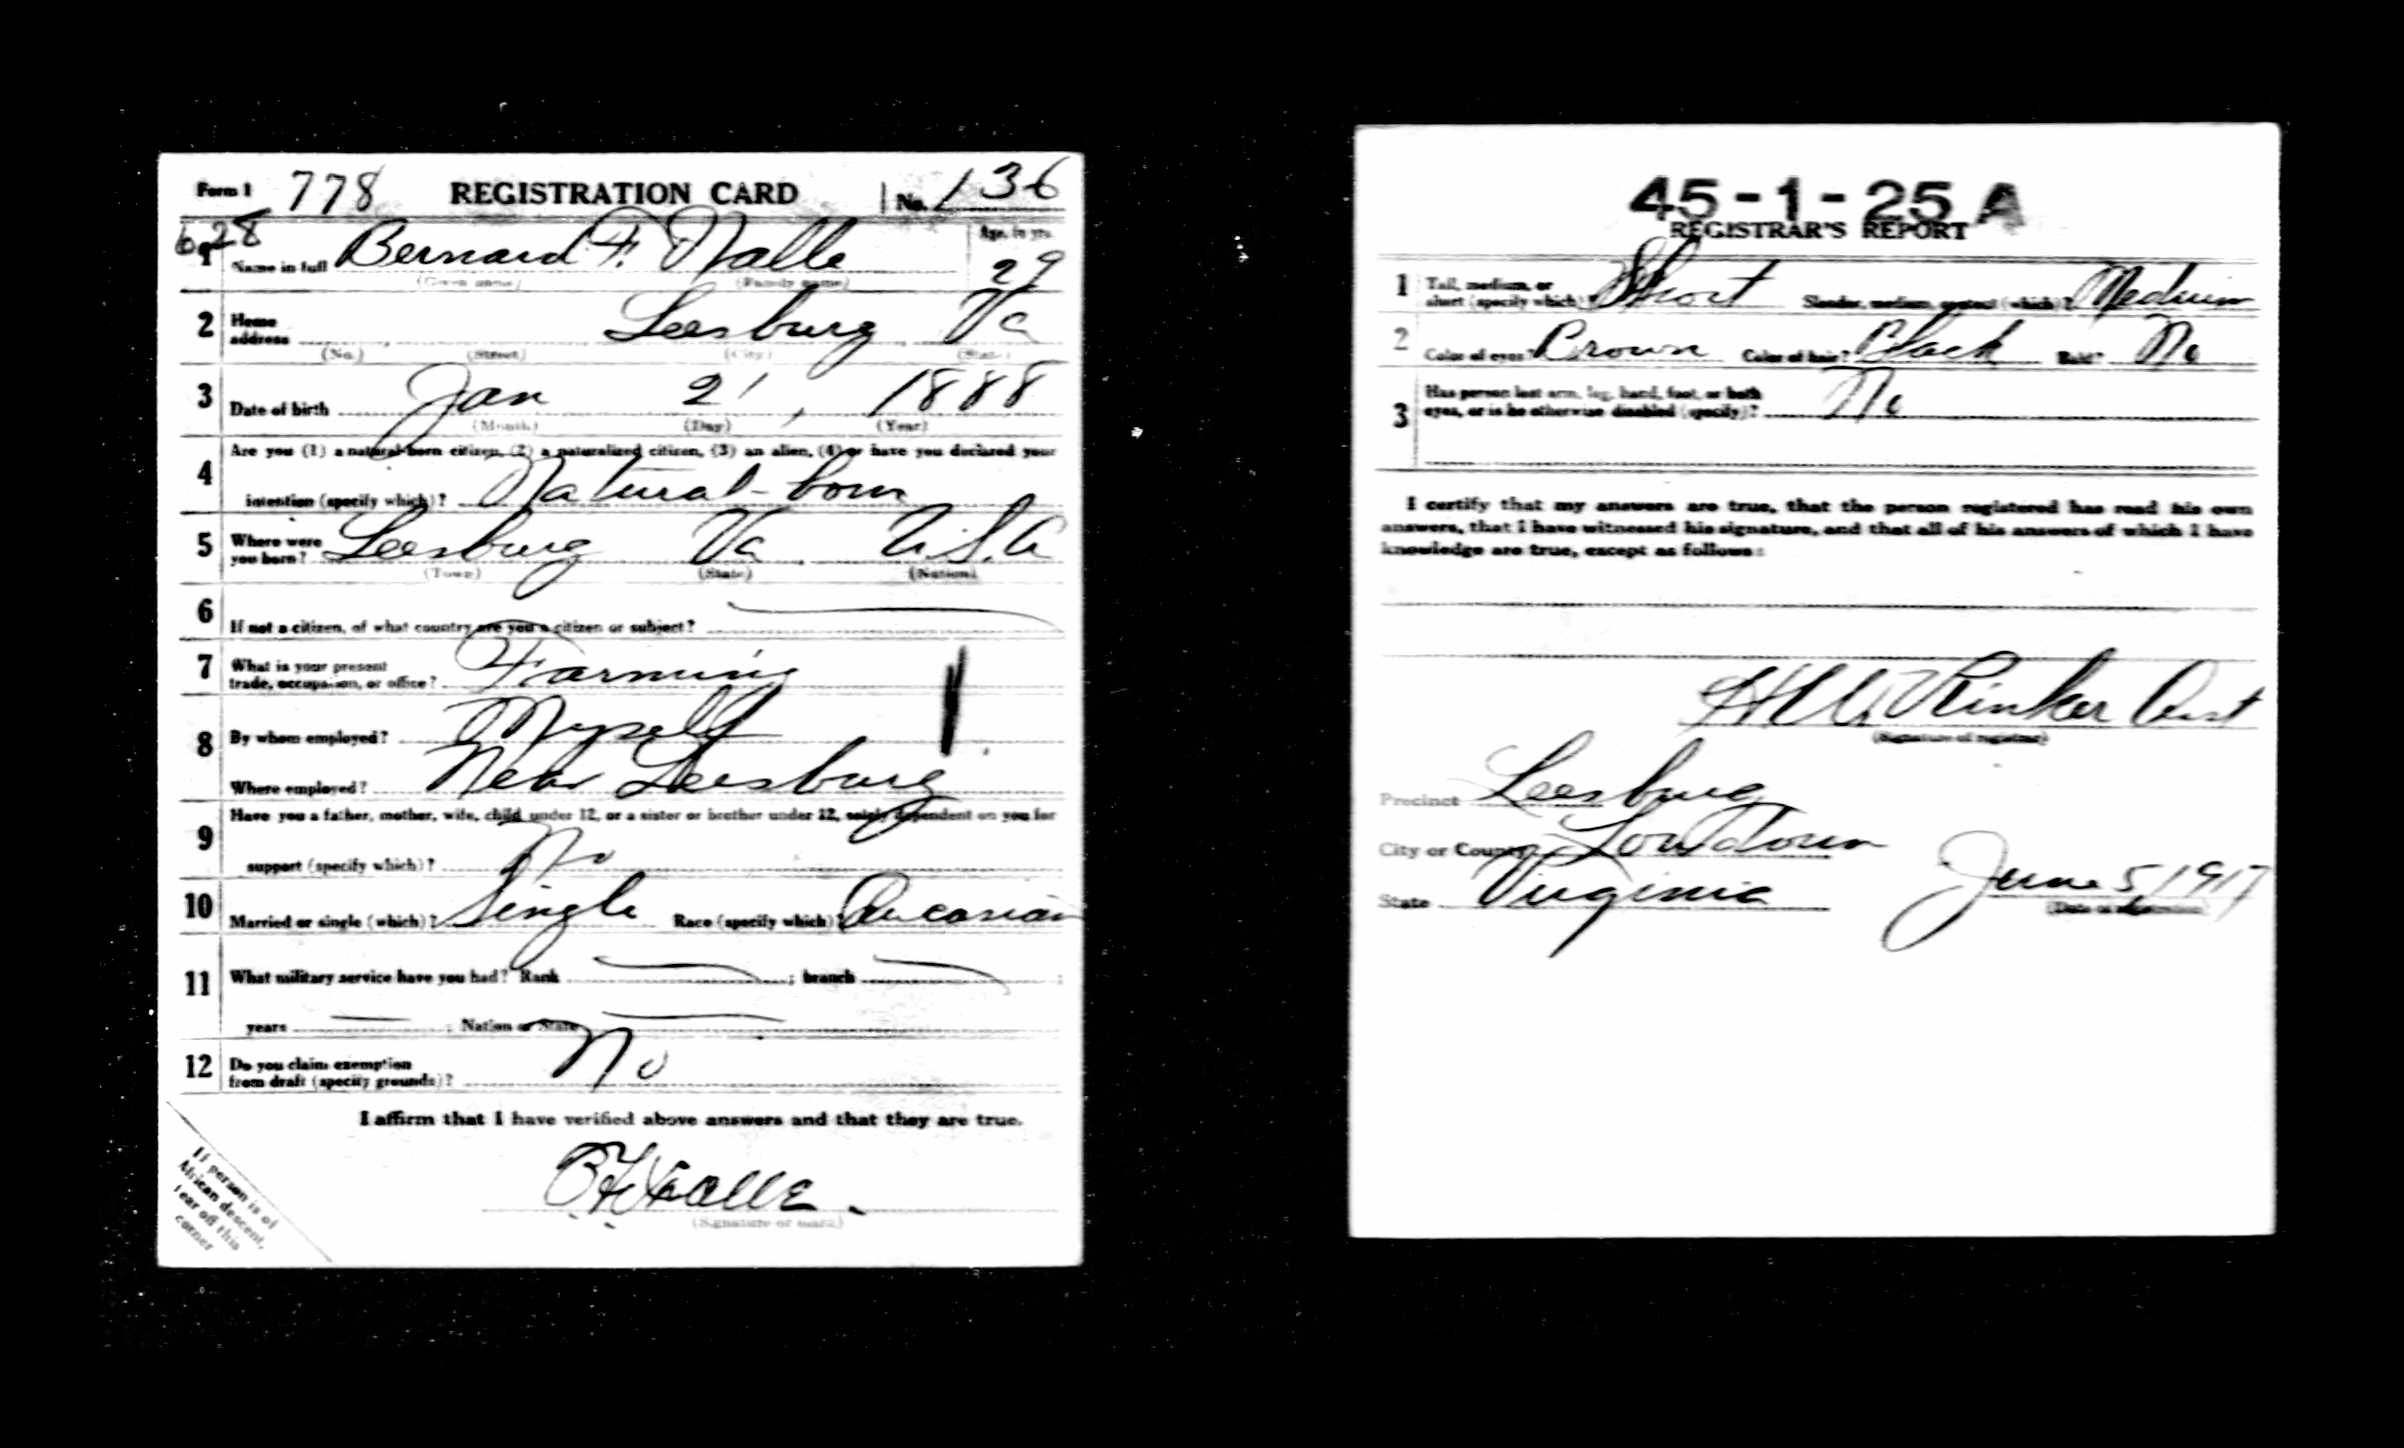 Form 1 778 REGISTRATION CARD No. 136
628
1 Name in full Bernard F. Nalle Age, in yrs. 29
(Given name) (Family name)
2 Home address Leesburg Va
(No.) (Street) (City) (State)
3 Date of birth Jan 21, 1888
(Month) (Day) (Year)
4 Are you (1) a natural-born citizen, (2) a naturalized citizen, (3) an alien, (4) or have you declared your
intention (specify which)? Natural-born
5 Where were you born? Leesburg Va U.S.A
(Town) (State) (Nation)
6 If not a citizen, of what country are you a citizen or subject?
7 What is your present trade, occupation, or office? Farming
8 By whom employed? Myself
Where employed? Near Leesburg
9 Have you a father, mother, wife, child under 12, or a sister or brother under 12, solely dependent on you for
support (specify which)? No
10 Married or single (which)? Single Race (specify which)? Caucasian
11 What military service have you had? Rank ; branch ;
years ; Nation or State
12 Do you claim exemption from draft (specify grounds)? No
I affirm that I have verified above answers and that they are true.
B.F. Nalle.
(Signature or mark)
If person is of
African descent,
tear off this
corner
45-1-25 A
REGISTRAR'S REPORT
1 Tall, medium, or short (specify which)? Short Slender, medium, or stout (which)? Medium
2 Color of eyes? Brown Color of hair? Black Bald? No
3 Has person lost arm, leg, hand, foot, or both
eyes, or is he otherwise disabled (specify)? No
I certify that my answers are true, that the person registered has read his own
answers, that I have witnessed his signature, and that all of his answers of which I have
knowledge are true, except as follows:
Rinker
(Signature of registrar)
Precinct Leesburg
City or County Loudoun
State Virginia June 5 1917
(Date of registration)